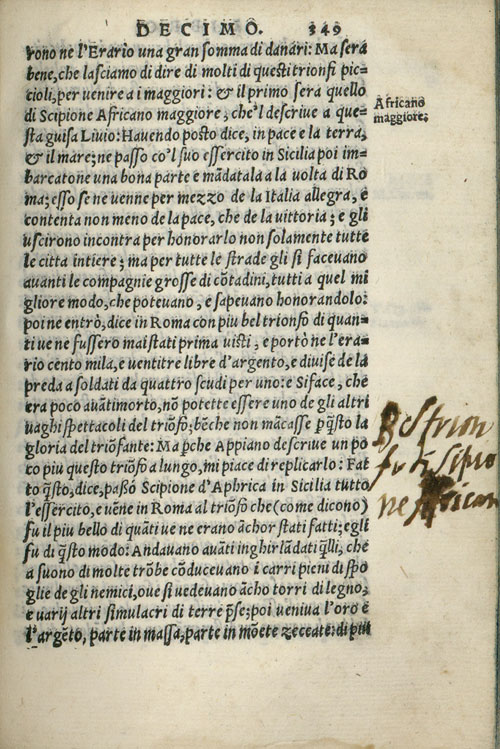 DECIMO. 349
rono ne l'Erario una gran somma di danari: Ma sera
bene, che lasciamo di dire di molti di questi trionfi pic=
cioli, per venire a i maggiori: & il primo sera quello
di Scipione Africano maggiore, che'l descriue a que=
sta guisa Liuio: Hauendo posto dice, in pace e la terra,
& il mare; ne passo co'l suo essercito in Sicilia poi im=
barcatone una bona parte e mãdatala a la uolta di Ro
ma; esso se ne uenne per mezzo de la Italia allegra, e
contenta non meno de la pace, che de la uittoria; e gli
uscirono incontra per honorarlo non solamente tutte
le citta intiere; ma per tutte le strade gli si faceuano
auanti le compagnie grosse di cõtadini, tutti a quel mi
gliore modo, che poteuano, e sapeuano honorandolo:
poi ne entrò, dice in Roma con piu bel trionfo di quan=
ti ue ne fussero mai stati prima uisti, e portò ne l'era=
rio cento mila, e uentitre libre d'argento, e diuise de la
preda a soldati da quattro scudi per uno: e Siface, che
era poco auãti morto, nõ potette essere uno de gli altri
uaghi spettacoli del triõfo; bẽche non mãcasse p q̃sto la
gloria del triõfante: Ma pche Appiano descriue un po
co piu questo triõfo a lungo, mi piace di replicarlo: Fat
to q̃sto, dice, passò Scipione d'Aphrica in Sicilia tutto
l'essercito, e uẽne in Roma al triõfo che (come dicono)
fu il piu bello di quãti ue ne erano ãchor stati fatti; e gli
fu di q̃sto modo: Andauano auãti inghirlãdati q̃lli, che
a suono di molte trõbe cõduceuano i carri pieni di spo
glie de gli nemici, oue si uedeuano ãcho torri di legno,
e uarij altri simulacri di terre p̃se; poi veniua l'oro e
l'argẽto, parte in massa, parte in mõete zeccate: di piu
Africano
maggiore;
trion
fo di sipio
ne african